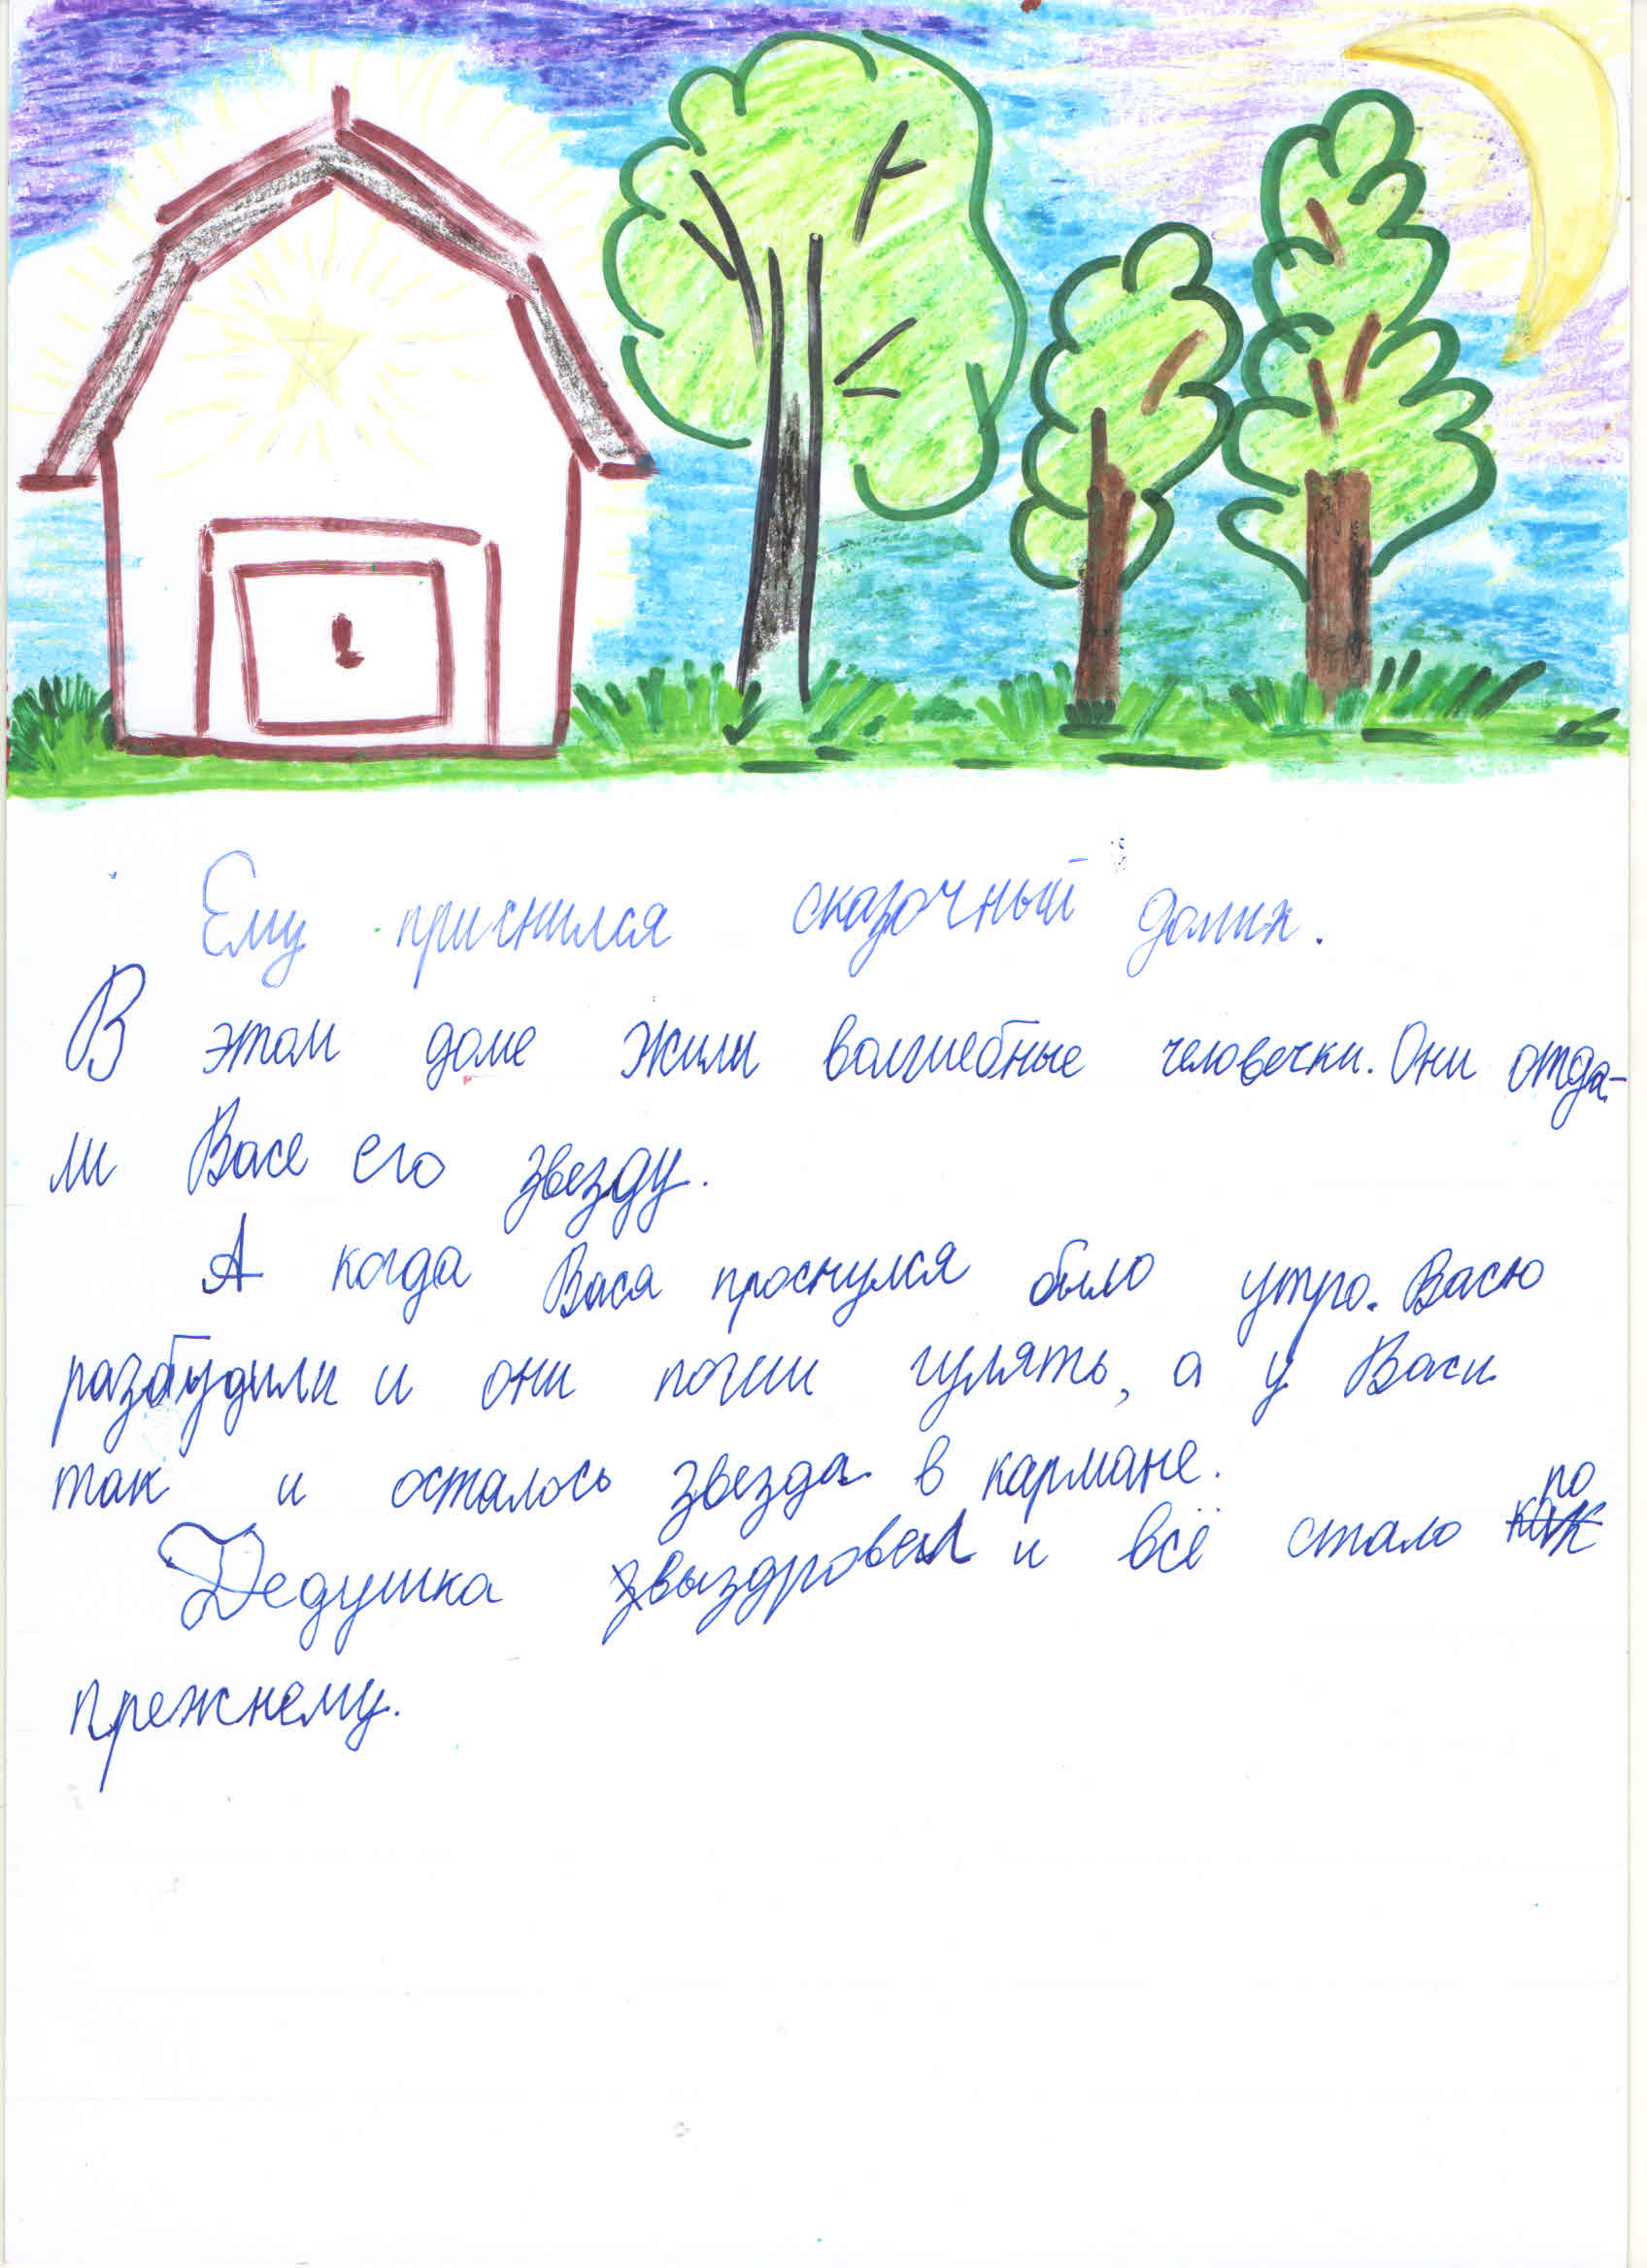 Ему приснился сказочный домик.
В этом доме жили волшебные человечки. Они отда-
ли Васе его звезду.
А когда Вася проснулся было утро. Васю
разбудили и они пошли гулять, а у Васи
так и осталось звезда в кармане.
Дедушка выздровел и всё стало по
прежнему.